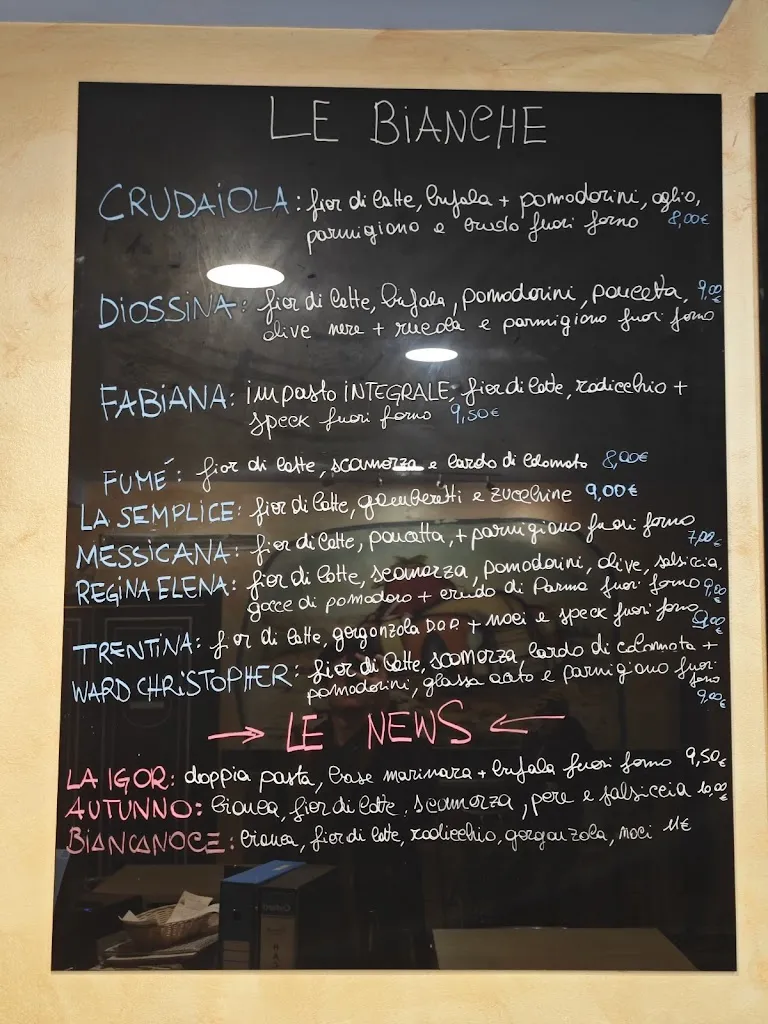 LE BIANCHE
CRUDAIOLA: fior di latte, bufala + pomodorini, aglio,
parmigiano e crudo fuori forno 8,00€
DIOSSINA: fior di latte, bufala, pomodorini, pancetta, 9,00€
olive nere + rucola e parmigiano fuori forno
FABIANA: impasto INTEGRALE, fior di latte, radicchio +
speck fuori forno 9,50€
FUMÉ: fior di latte, scamorza e lardo di Colonnata 8,00€
LA SEMPLICE: fior di latte, gamberetti e zucchine 9,00€
MESSICANA: fior di latte, pancetta, + parmigiano fuori forno 7,00€
REGINA ELENA: fior di latte, scamorza, pomodorini, olive, salsiccia,
gocce di pomodoro + crudo di Parma fuori forno 9,00€
TRENTINA: fior di latte, gorgonzola D.O.P. + noci e speck fuori forno 9,00€
WARD CHRISTOPHER: fior di latte, scamorza, lardo di colonnata +
pomodorini, glassa aceto e parmigiano fuori
forno
9,00€
→ LE NEWS ←
LA IGOR: doppia pasta, base marinara + bufala fuori forno 9,50€
AUTUNNO: bianca, fior di latte, scamorza, pere e salsiccia 10,00€
BIANCANOCE: bianca, fior di latte, radicchio, gorgonzola, noci 11€